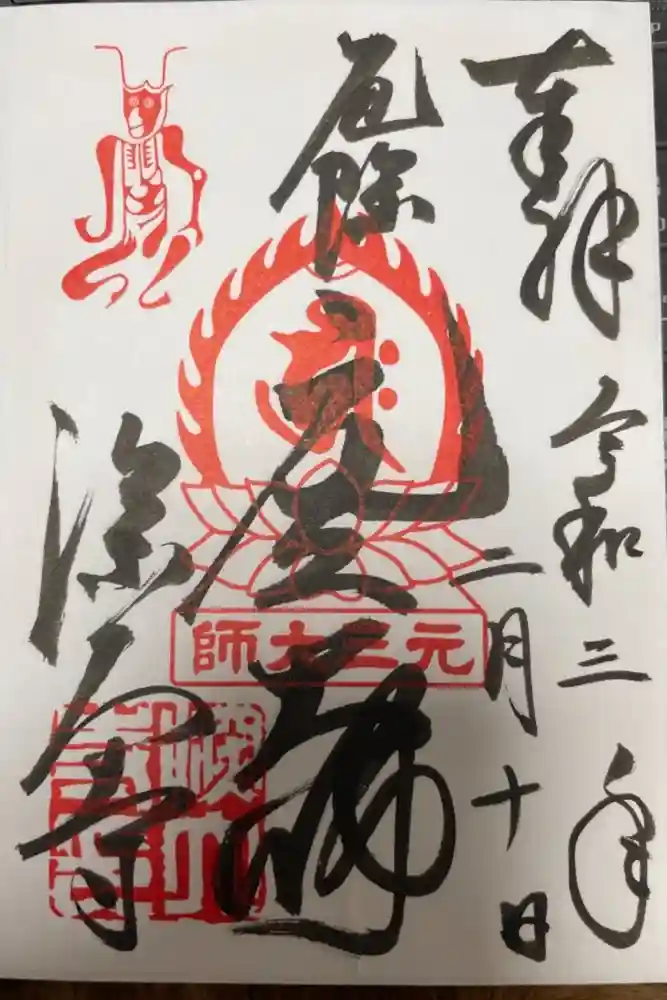 奉拝
令和三年
二月十日
厄除
元三大師
元三大師
深大寺